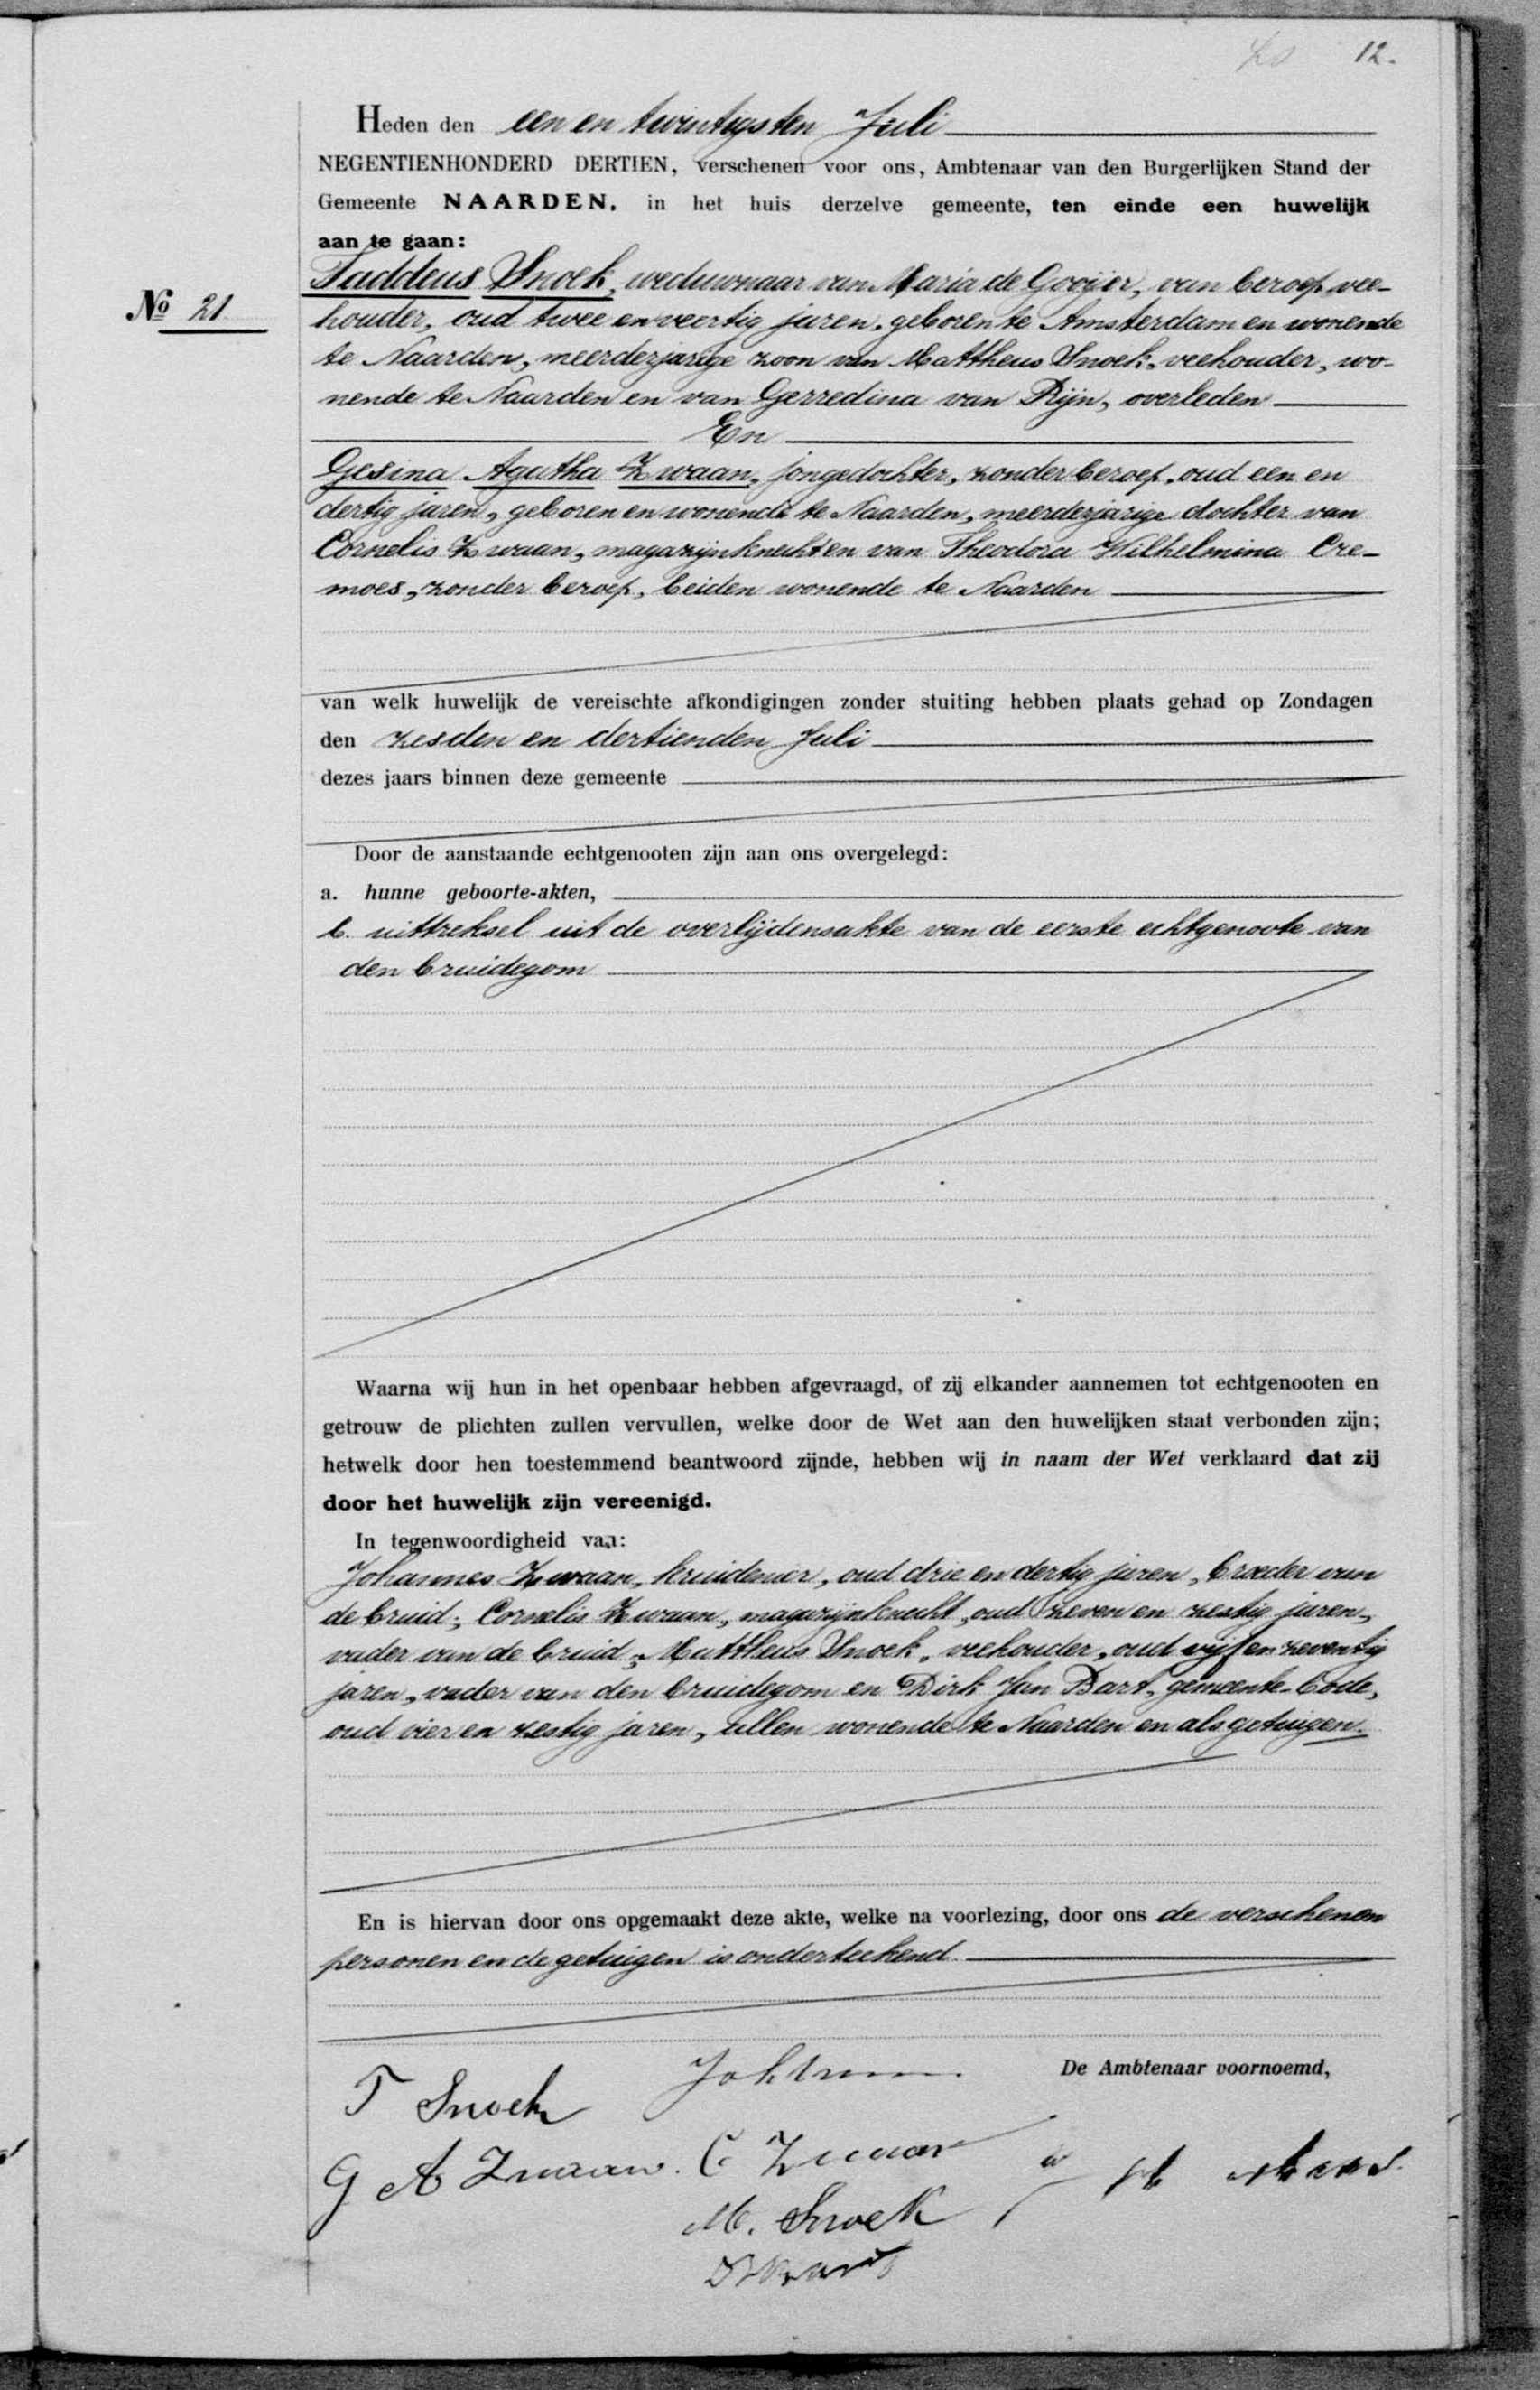 12.
Heden den een en twintigsten Juli
NEGENTIENHONDERD DERTIEN, verschenen voor ons, Ambtenaar van den Burgerlijken Stand der
Gemeente NAARDEN, in het huis derzelve gemeente, ten einde een huwelijk
aan te gaan:
No 21
Taddeus Snoek, weduwnaar van Maria de Gooijer, van beroep vee-
houder, oud twee en veertig jaren, geboren te Amsterdam en wonende
te Naarden, meerderjarige zoon van Mattheus Snoek, veehouder, wo-
nende te Naarden en van Gerredina van Rijn, overleden
En
Gesina Agatha Zwaan, jongedochter, zonder beroep, oud een en
dertig jaren, geboren en wonende te Naarden, meerderjarige dochter van
Cornelis Zwaan, magazijnknecht en van Theodora Wilhelmina Cre-
moes, zonder beroep, beiden wonende te Naarden
van welk huwelijk de vereischte afkondigingen zonder stuiting hebben plaats gehad op Zondagen
den zesden en dertienden Juli
dezes jaars binnen deze gemeente
Door de aanstaande echtgenooten zijn aan ons overgelegd:
a. hunne geboorte-akten,
b. uittreksel uit de overlijdensakte van de eerste echtgenoote van
den bruidegom
Waarna wij hun in het openbaar hebben afgevraagd, of zij elkander aannemen tot echtgenooten en
getrouw de plichten zullen vervullen, welke door de Wet aan den huwelijken staat verbonden zijn;
hetwelk door hen toestemmend beantwoord zijnde, hebben wij in naam der Wet verklaard dat zij
door het huwelijk zijn vereenigd.
In tegenwoordigheid van:
Johannes Zwaan, kruidenier, oud drie en dertig jaren, broeder van
de bruid; Cornelis Zwaan, magazijnknecht, oud zeven en zestig jaren,
vader van de bruid; Mattheus Snoek, veehouder, oud vijf en zeventig
jaren, vader van den bruidegom en Dirk Jan Bart, gemeente-bode,
oud vier en zestig jaren, allen wonende te Naarden en als getuigen.
En is hiervan door ons opgemaakt deze akte, welke na voorlezing, door ons de verschenen
personen en de getuigen is onderteekend.
De Ambtenaar voornoemd,
T Snoek
G A Zwaan. C Zwaan
M. Snoek